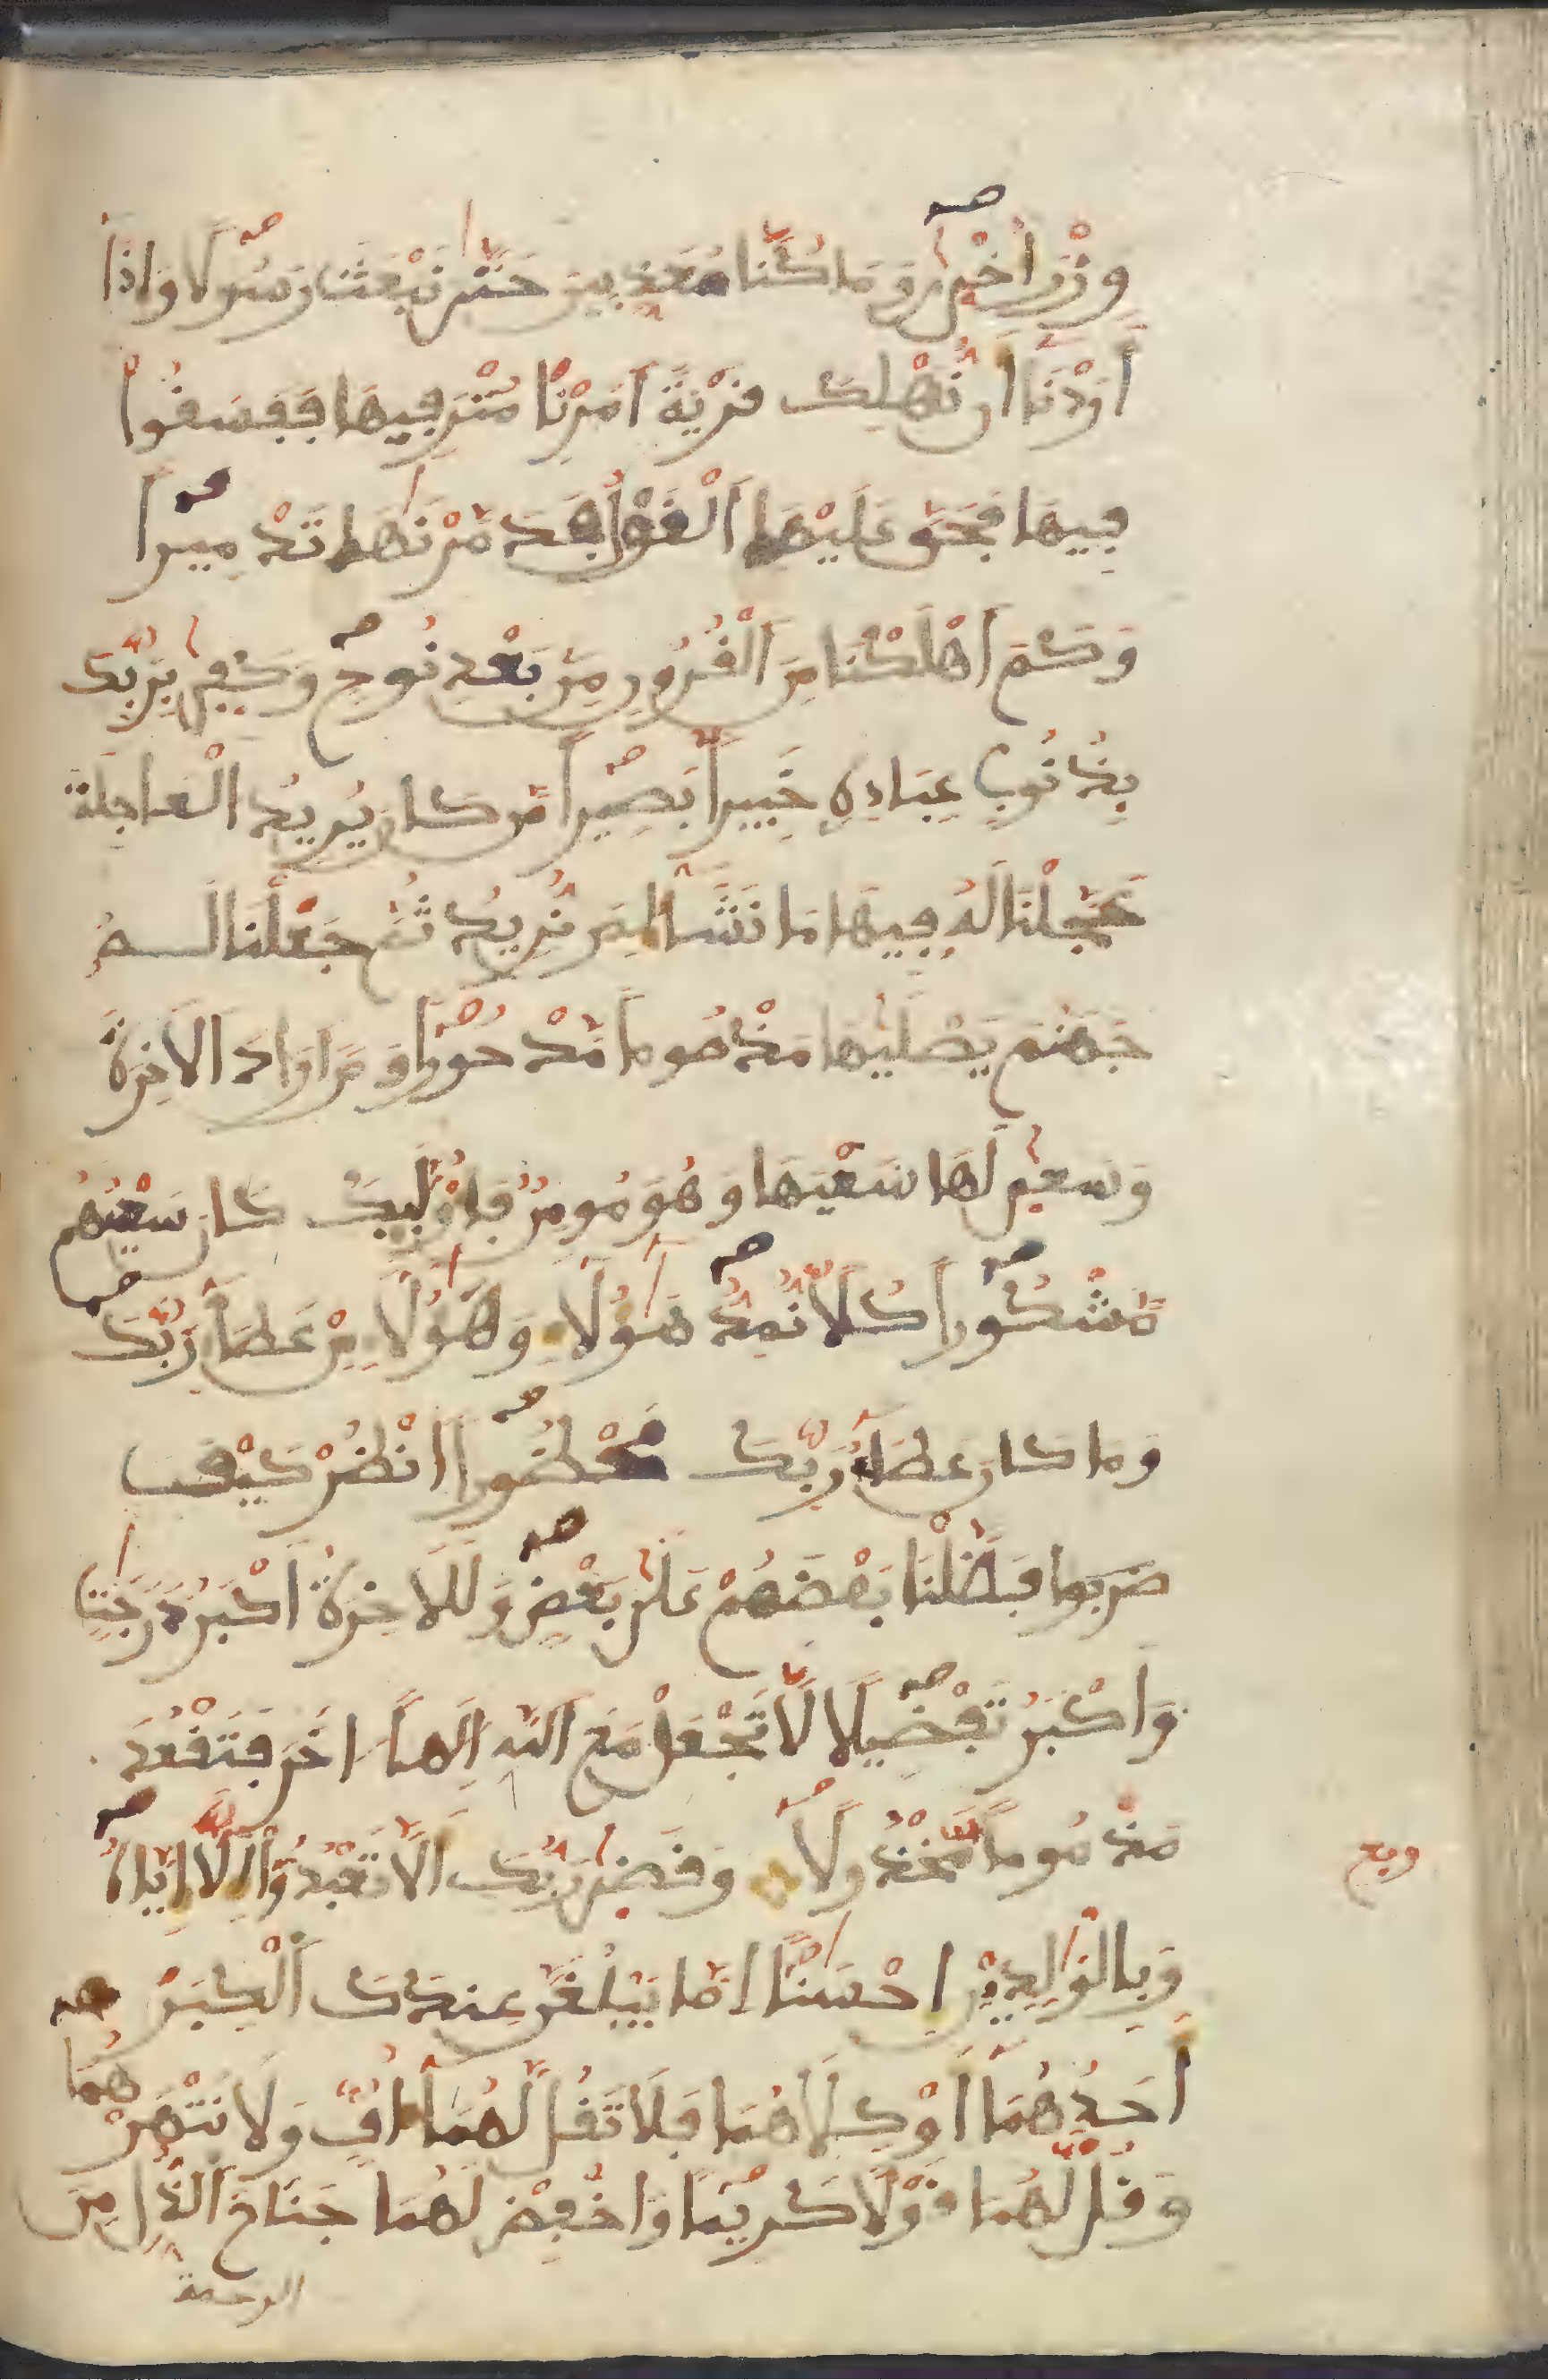 وِزْرَ أُخْرِىٰ وَمَا كُنَّا مُعَذِّبِينَ حَتَّىٰ نَبْعَثَ رَسُولًا وَإِذَا
أَرَدْنَا أَن نُّهْلِكَ قَرْيَةً أَمَرْنَا مُتْرَفِيهَا فَفَسَقُوا
فِيهَا فَحَقَّ عَلَيْهَا الْقَوْلُ فَدَمَّرْنَٰهَا تَدْمِيرًا
وَكَمْ أَهْلَكْنَا مِنَ الْقُرُونِ مِن بَعْدِ نُوحٍ وَكَفِىٰ بِرَبِّكَ
بِذُنُوبِ عِبَادِهِ خَبِيرًا بَصِيرًا مَّن كَانَ يُرِيدُ الْعَاجِلَةَ
عَجَّلْنَا لَهُ فِيهَا مَا نَشَآءُ لِمَن نُّرِيدُ ثُمَّ جَعَلْنَا لَهُ
جَهَنَّمَ يَصْلَيٰهَا مَذْمُومًا مَّدْحُورًا وَمَنَ ارَادَ الَاخِرَةَ
وَسَعِىٰ لَهَا سَعْيَهَا وَهُوَ مُومِنٌ فَأُوْلَٰئِكَ كَانَ سَعْيُهُم
مَّشْكُورًا كُلًّا نُّمِدُّ هَٰؤُلَاءِ وَهَٰؤُلَاءِ مِنْ عَطَآءِ رَبِّكَ
وَمَا كَانَ عَطَآءُ رَبِّكَ مَحْظُورًا انظُرْ كَيْفَ
فَضَّلْنَا بَعْضَهُمْ عَلَىٰ بَعْضٍ وَلَلَاخِرَةُ أَكْبَرُ دَرَجَٰتٍ
وَأَكْبَرُ تَفْضِيلًا لَّا تَجْعَلْ مَعَ اللَّهِ إِلَٰهًا اخَرَ فَتَقْعُدَ
مَذْمُومًا مَّخْذُولًا وَقَضِىٰ رَبُّكَ أَلَّا تَعْبُدُوا إِلَّا إِيَّاهُ
وَبِالْوَٰلِدَيْنِ إِحْسَٰنًا إِمَّا يَبْلُغَنَّ عِندَكَ الْكِبَرَ
أَحَدُهُمَا أَوْ كِلَاهُمَا فَلَا تَقُل لَّهُمَا أُفٍّ وَلَا تَنْهَرْهُمَا
وَقُل لَّهُمَا قَوْلًا كَرِيمًا وَاخْفِضْ لَهُمَا جَنَاحَ الذُّلِّ مِنَ
الرحمة